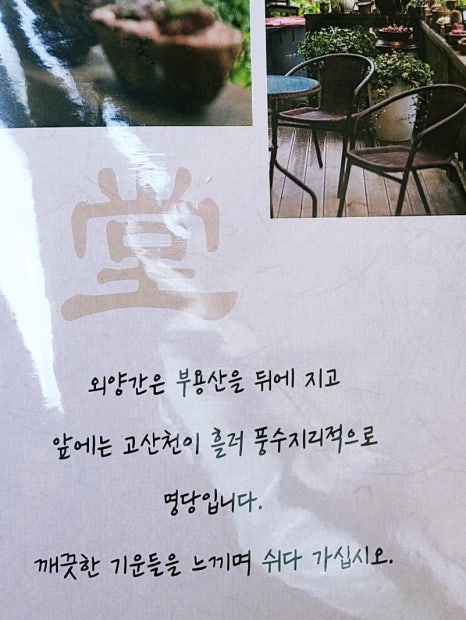 堂
외양간은 부용산을 뒤에 지고
앞에는 고산천이 흘러 풍수지리적으로
명당입니다.
깨끗한 기운들을 느끼며 쉬다 가십시오.